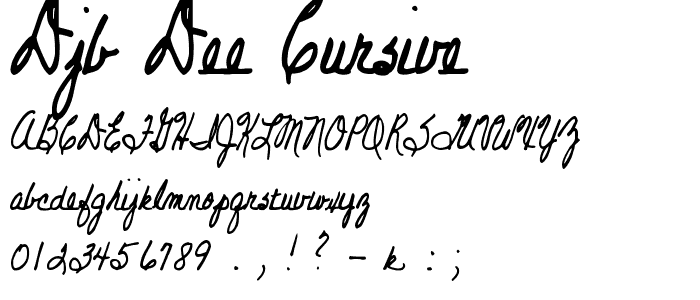 Djb Dee Cursive
ABCDEFGHIJKLMNOPQRSTUVWXYZ
abcdefghijklmnopqrstuvwxyz
0123456789 . , ! ? - k : ;